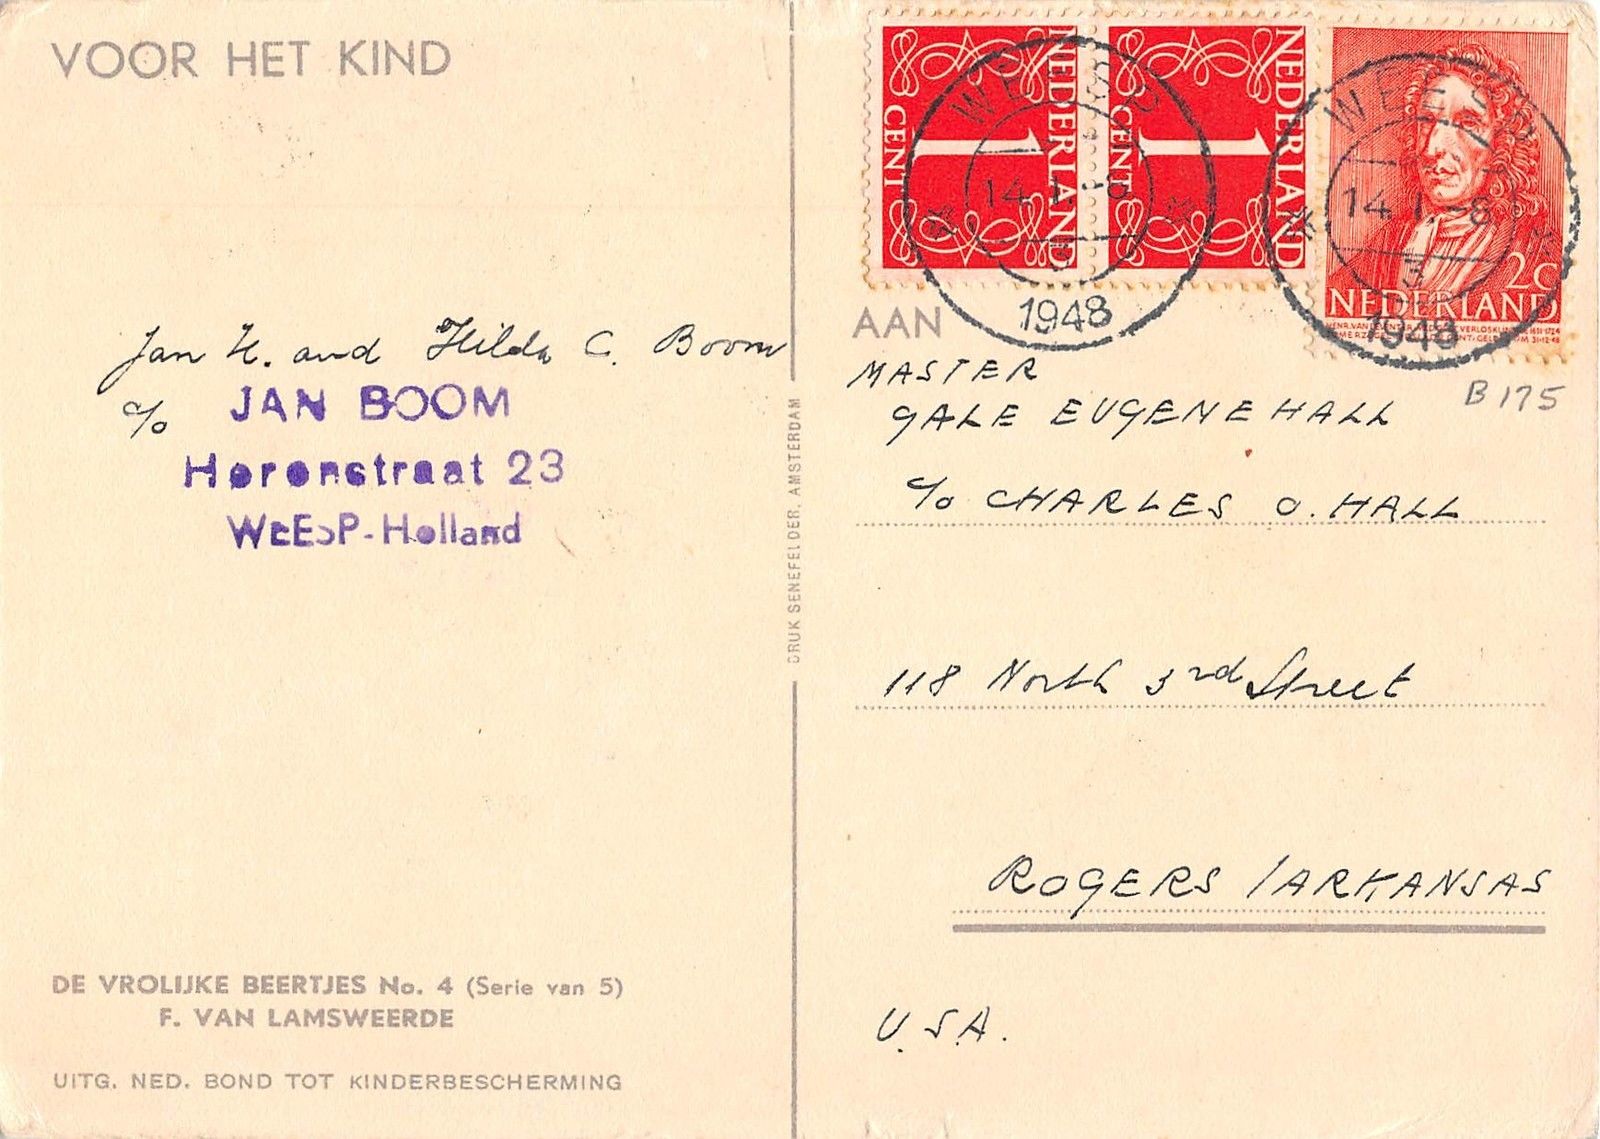 VOOR HET KIND
Jan H. and Hilda C. Boom
c/o JAN BOOM
Herenstraat 23
WEESP-Holland
DE VROLIJKE BEERTJES No. 4 (Serie van 5)
F. VAN LAMSWEERDE
UITG. NED. BOND TOT KINDERBESCHERMING
DRUK SENEFELDER, AMSTERDAM
NEDERLAND
1
CENT
NEDERLAND
1
CENT
2c
NEDERLAND
WEESP
14.1.-8
3
1948
WEESP
14.1.-8
3
1948
B 175
AAN
MASTER
GALE EUGENE HALL
c/o CHARLES O. HALL
118 North 3rd Street
ROGERS / ARKANSAS
U.S.A.